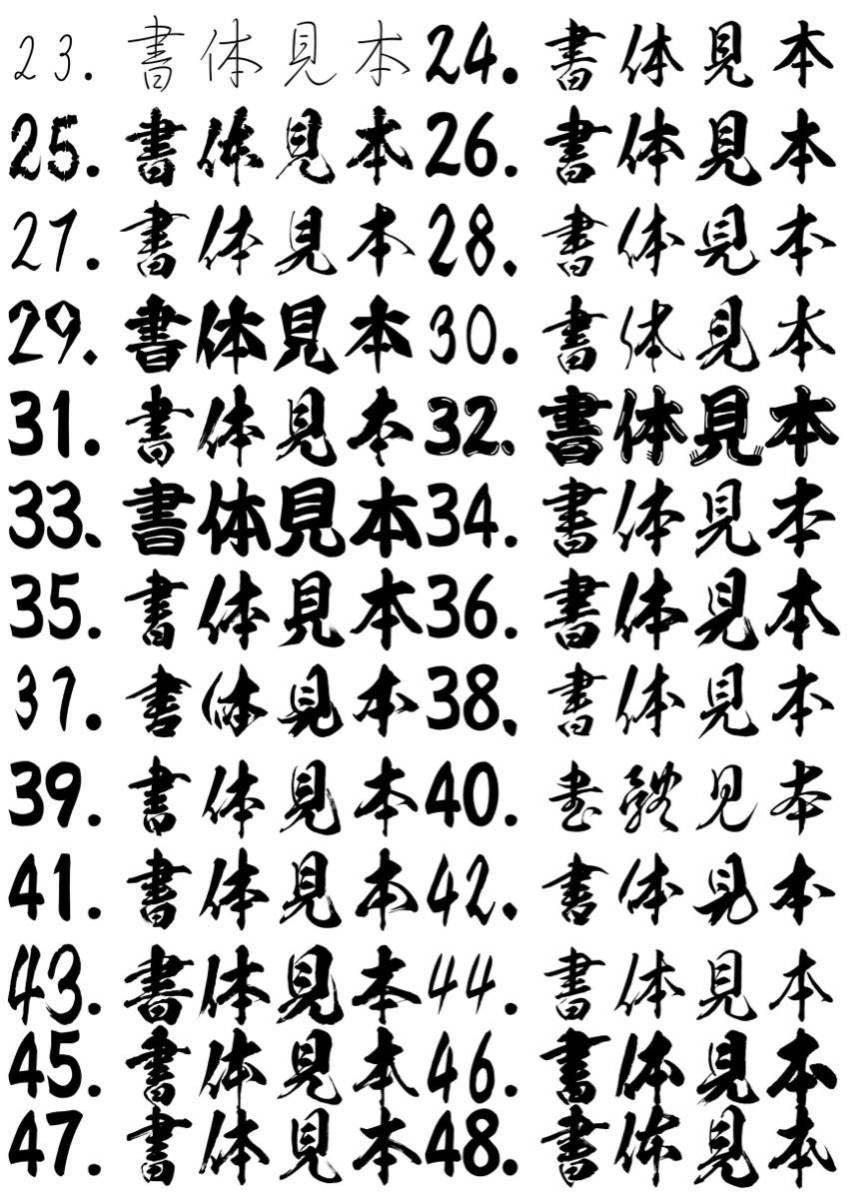 23. 書体見本 24. 書体見本
25. 書体見本 26. 書体見本
27. 書体見本 28. 書体見本
29. 書体見本 30. 書体見本
31. 書体見本 32. 書体見本
33. 書体見本 34. 書体見本
35. 書体見本 36. 書体見本
37. 書体見本 38. 書体見本
39. 書体見本 40. 書体見本
41. 書体見本 42. 書体見本
43. 書体見本 44. 書体見本
45. 書体見本 46. 書体見本
47. 書体見本 48. 書体見本